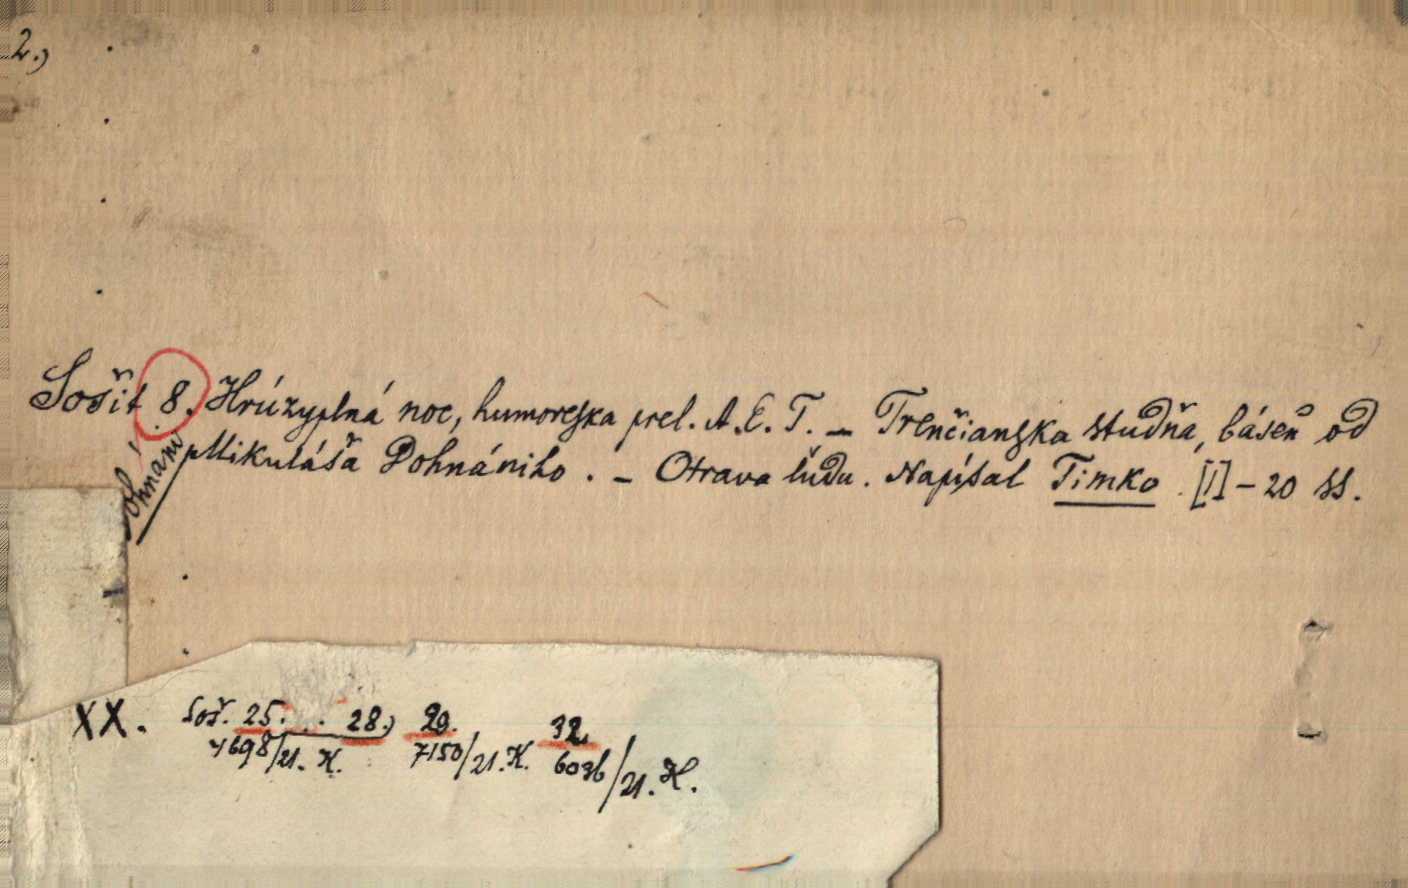 2.,
Sošit 8. Hrúzyplná noc, humoreska prel. A. E. T. — Trenčianska studňa, báseň od
Mikuláša Dohnániho. — Otrava ľudu. Napísal Timko. [1] — 20 ss.
XX. Soš. 25. . 28.) 29. 32.
4698/21. K. 7150/21. K. 6036/21. K.